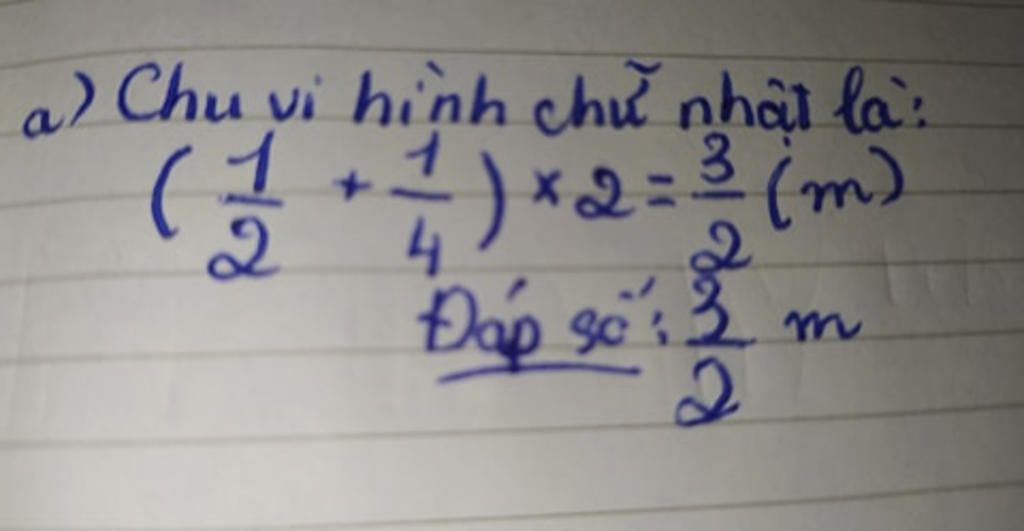 a) Chu vi hình chữ nhật là:
(1/2 + 1/4) × 2 = 3/2 (m)
Đáp số: 3/2 m